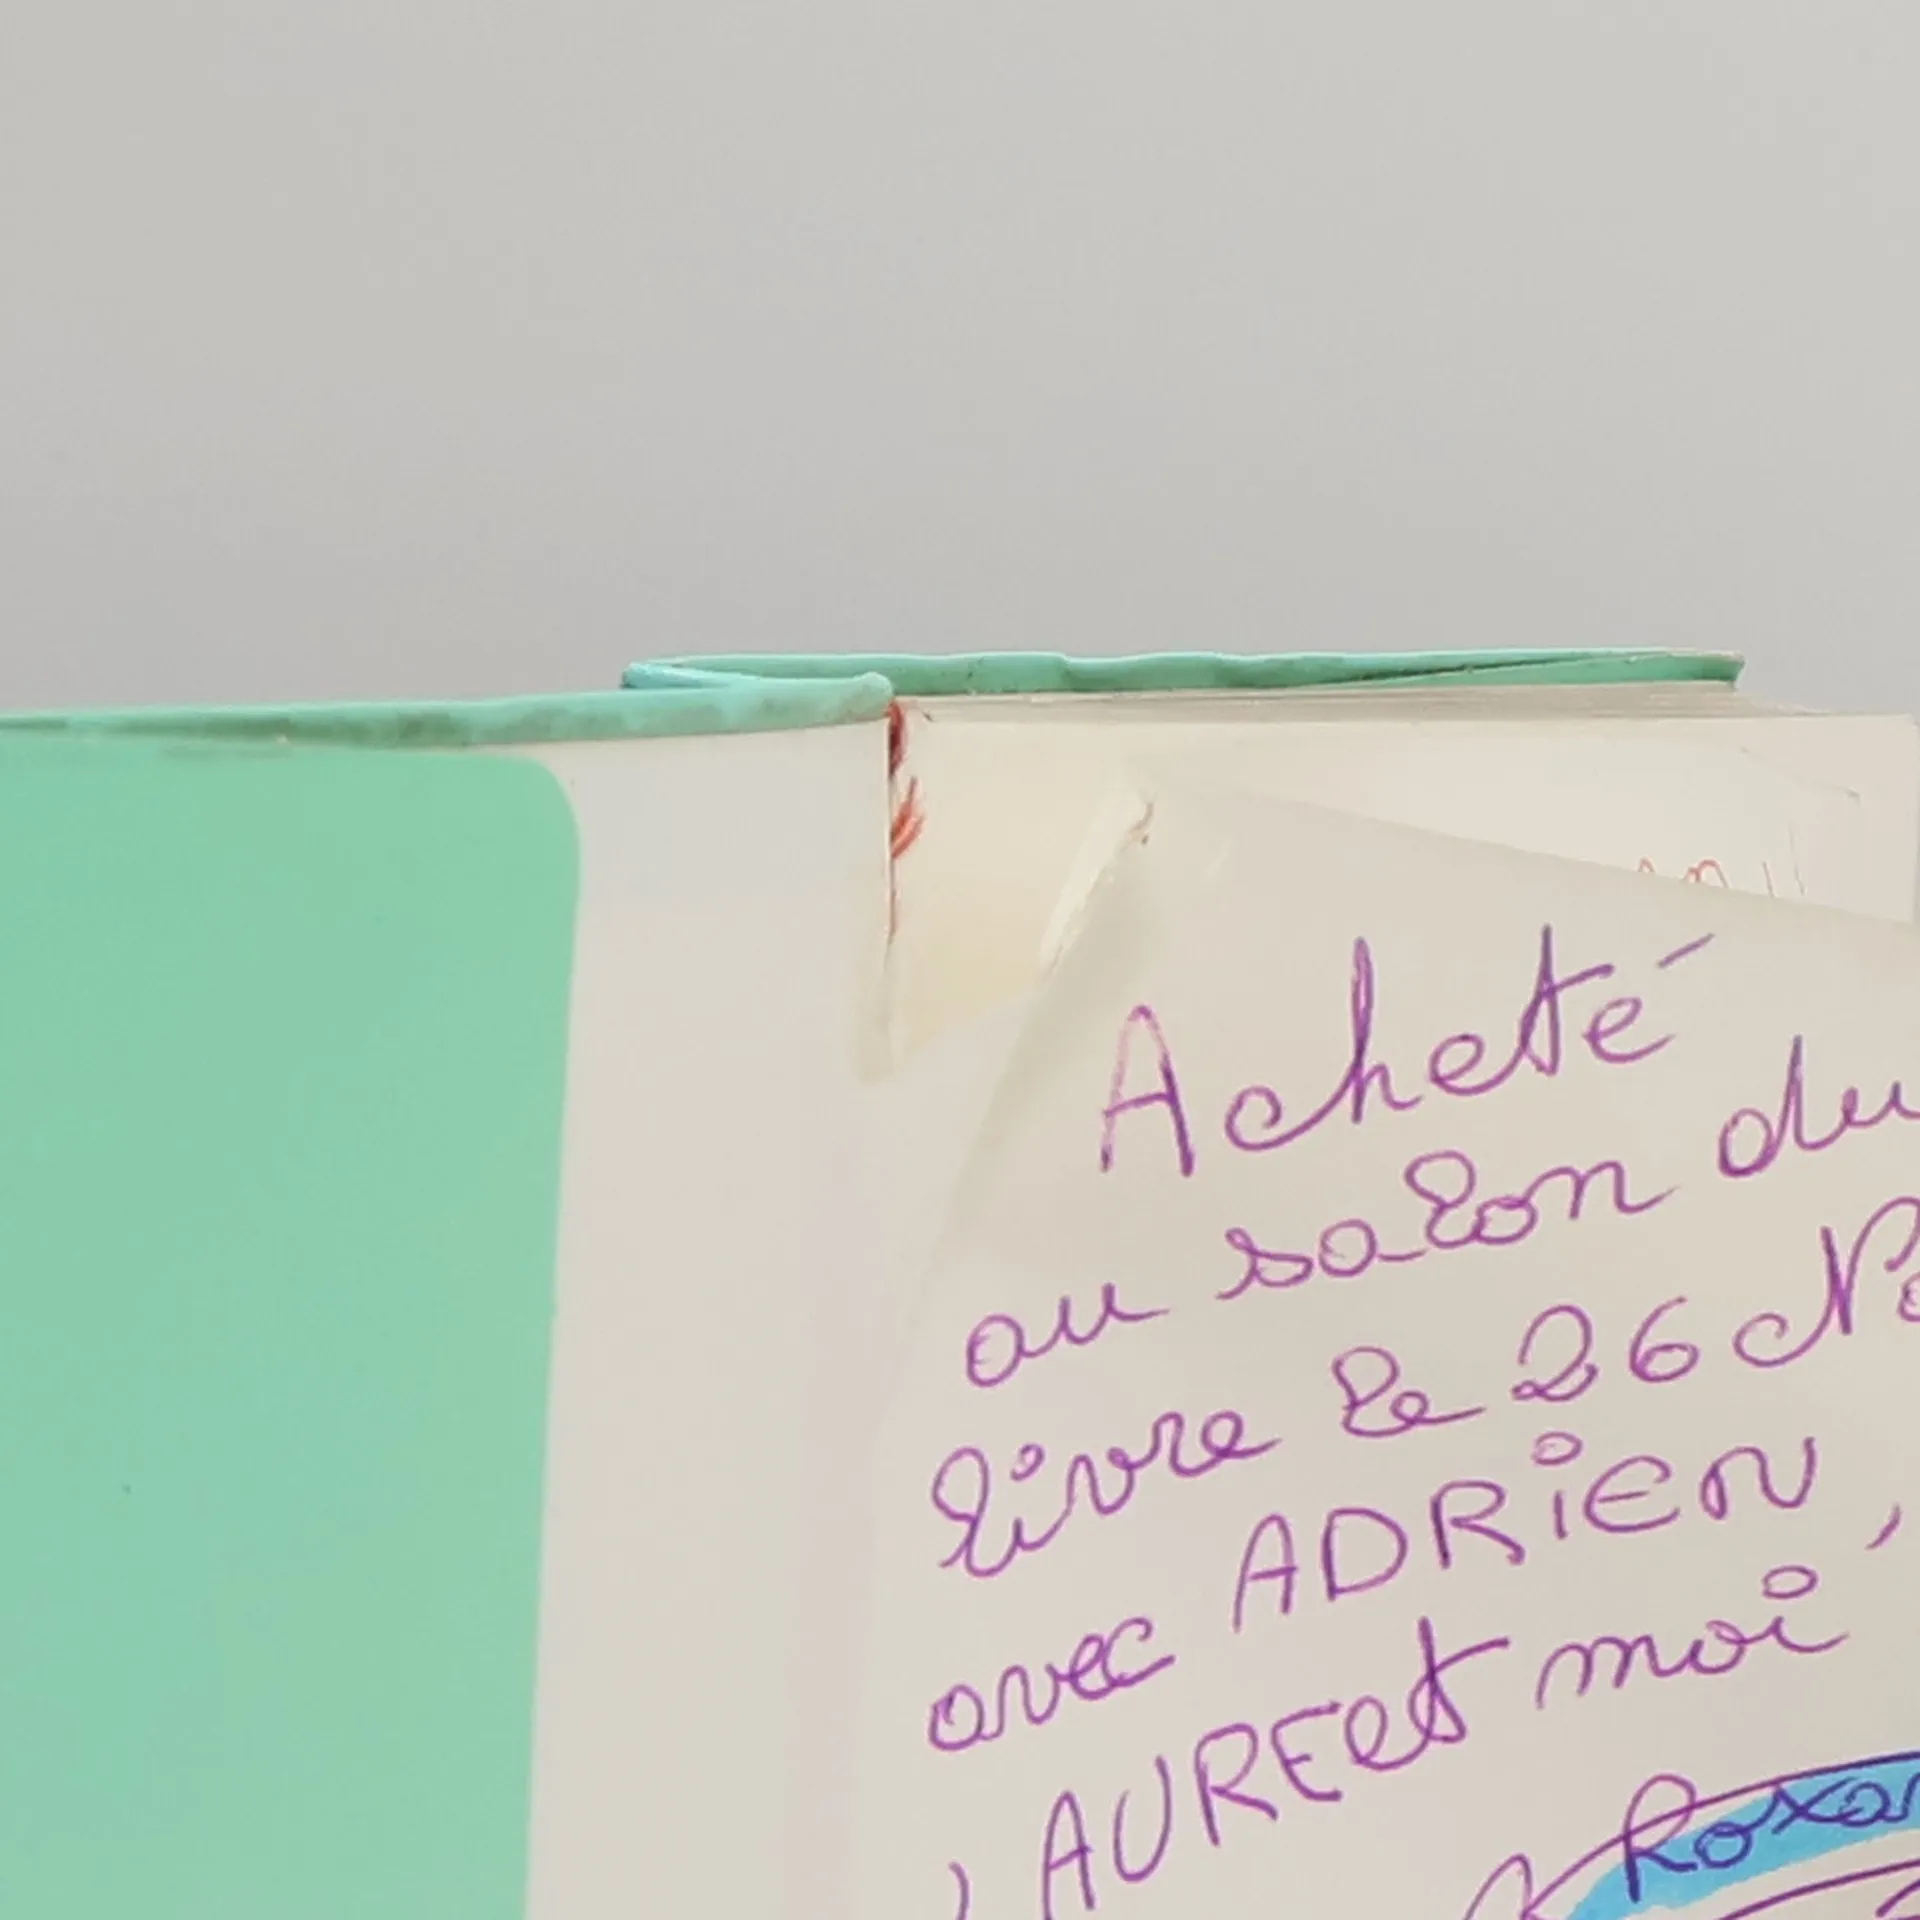 Acheté
au salon du
livre le 26 No
avec ADRiEN,
LAURE et moi
Roxan